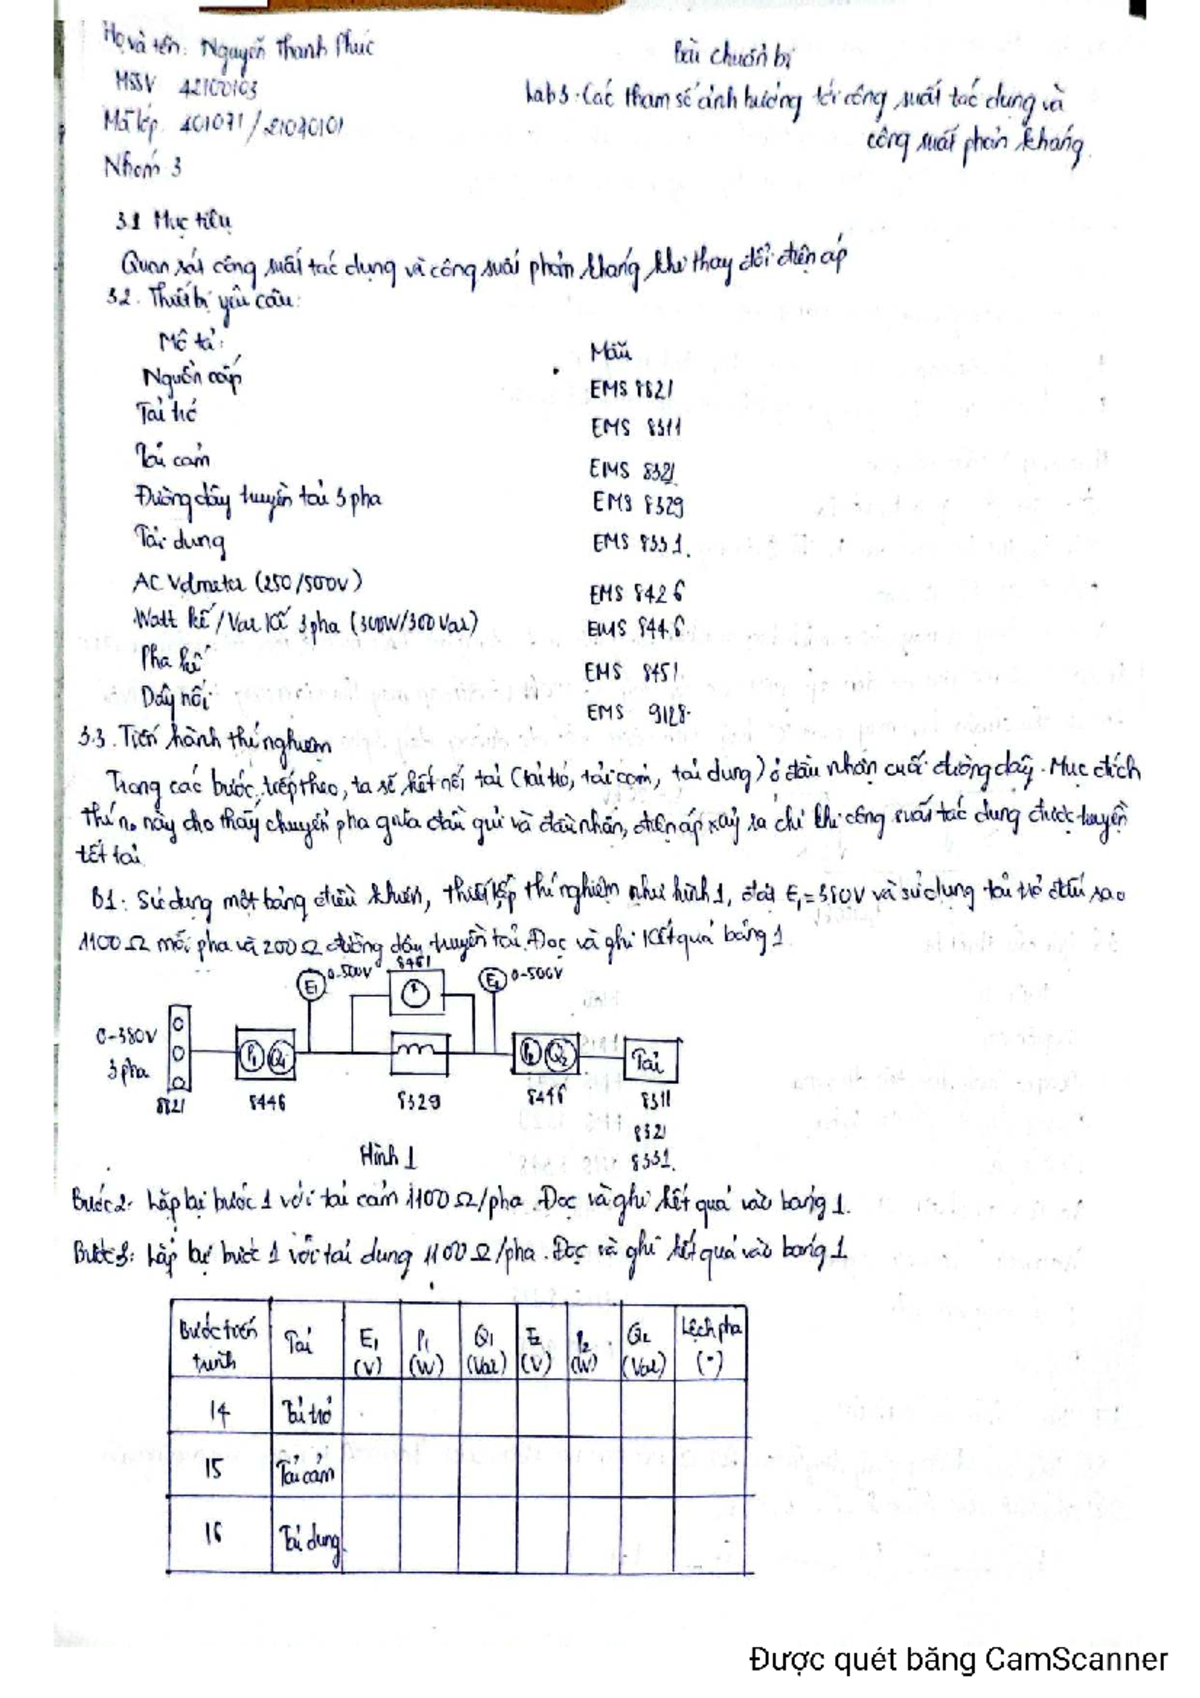 Họ và tên: Nguyễn Thanh Phúc
MSSV 42100103
Mã lớp. 401071/21040101
Nhóm 3
Bài chuẩn bị
Lab 3: Các tham số ảnh hưởng tới công suất tác dụng và
công suất phản kháng.
3.1 Mục tiêu
Quan sát công suất tác dụng và công suất phản kháng khi thay đổi điện áp
3.2. Thiết bị yêu cầu:
Mô tả: Mẫu
Nguồn cấp EMS 8821
Tải trở EMS 8311
Tải cảm EMS 8321
Đường dây truyền tải 3 pha EMS 8329
Tải dung EMS 8331.
AC Volmeter (250/500V) EMS 8426
Watt kế/Var kế 3 pha (300W/300Var) EMS 8446
Pha kế EMS 8451.
Dây nối EMS 9128.
3.3. Tiến hành thí nghiệm
Trong các bước tiếp theo, ta sẽ kết nối tải (tải trở, tải cảm, tải dung) ở đầu nhận cuối đường dây. Mục đích
thí n. này cho thấy chuyển pha giữa đầu gửi và đầu nhận, điện áp xảy ra chỉ khi công suất tác dụng được truyền
tết tải
B1: Sử dụng một bảng điều khiển, thiết lập thí nghiệm như hình 1, đặt E₁=380V và sử dụng tải trở đấu sao
1100Ω mỗi pha và 200Ω đường dây truyền tải. Đọc và ghi kết quả bảng 1
8451
E₁ 0-500V E₂ 0-500V
0-380V
3 pha
P₁ Q₁ P₂ Q₂ Tải
8821 8446 8329 8446 8311
8321
8331.
Hình 1
Bước 2: Lặp lại bước 1 với tải cảm 1100Ω/pha. Đọc và ghi kết quả vào bảng 1.
Bước 3: Lặp lại bước 1 với tải dung 1100Ω/pha. Đọc và ghi kết quả vào bảng 1.
Bước tiến trình Tải E₁ (V) P₁ (W) Q₁ (Var) E₂ (V) P₂ (W) Q₂ (Var) Lệch pha (°)
14 Tải trở
15 Tải cảm
16 Tải dung
Được quét bằng CamScanner